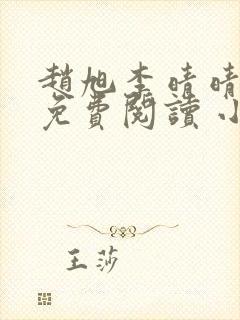 趙旭李晴晴
免費閱讀小
王莎